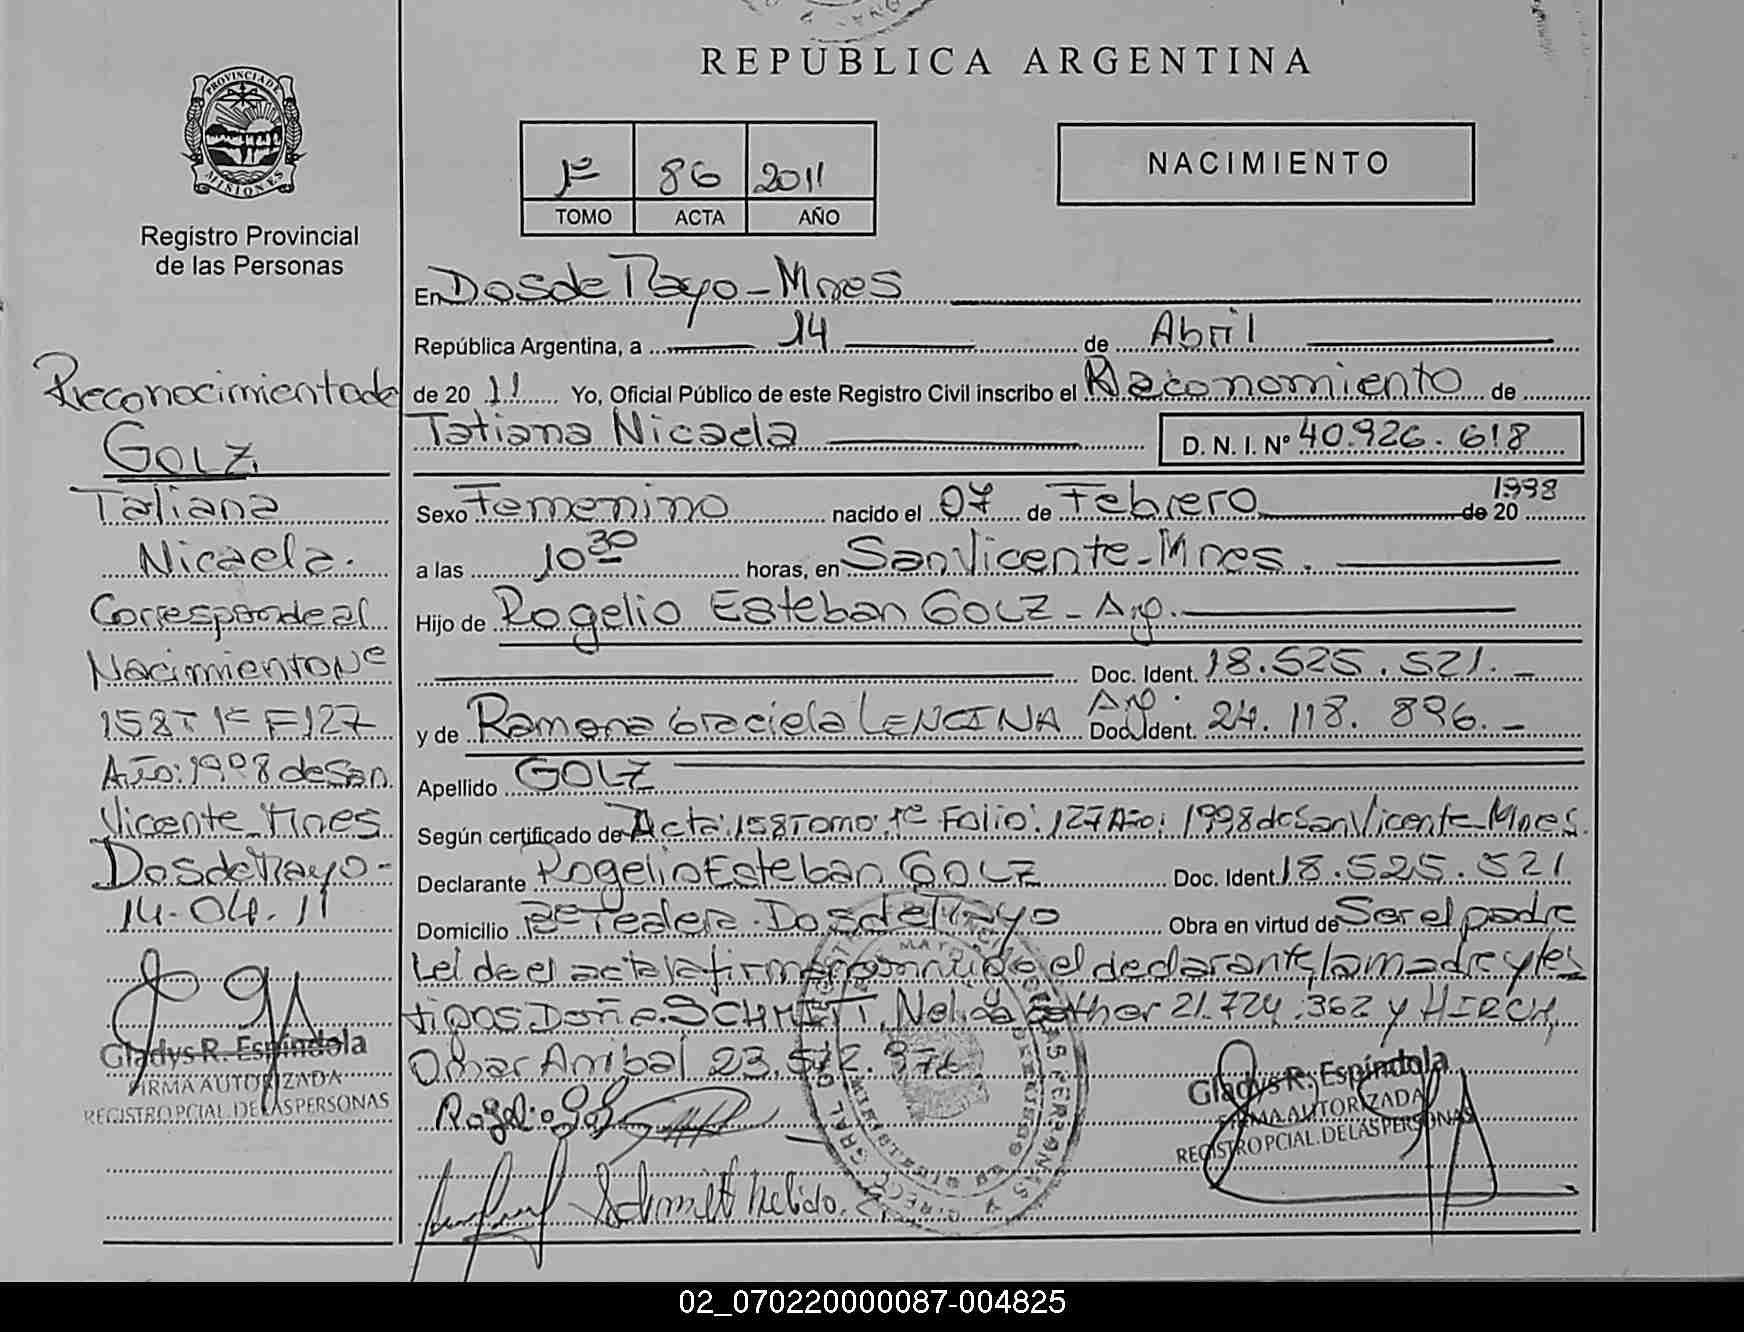 REPUBLICA ARGENTINA
PROVINCIA DE
MISIONES
Registro Provincial
de las Personas
1º 86 2011
TOMO ACTA AÑO
NACIMIENTO
Reconocimiento de
GOLZ
Tatiana
Nicaela.
Corresponde al
Nacimiento Nº
158 T 1º F 127
Año: 1998 de San
Vicente Mnes
Dos de Mayo -
14-04-11
Gladys R. Espíndola
FIRMA AUTORIZADA
REGISTRO PCIAL. DE LAS PERSONAS
En Dos de Mayo - Mnes
República Argentina, a 14 de Abril
de 20 11 Yo, Oficial Público de este Registro Civil inscribo el Reconomiento de
Tatiana Nicaela D. N. I. Nº 40.926.618
Sexo Femenino nacido el 07 de Febrero de 20 1998
a las 10 30 horas, en San Vicente - Mnes.
Hijo de Rogelio Esteban GOLZ - Arg.
Doc. Ident. 18.525.521.-
y de Ramona Graciela LENCINA Arg. Doc. Ident. 24.118.896.-
Apellido GOLZ
Según certificado de Acta: 158 Tomo: 1º Folio: 127 Año: 1998 de San Vicente - Mnes.
Declarante Rogelio Esteban GOLZ Doc. Ident. 18.525.521
Domicilio Dos de Mayo Obra en virtud de Ser el padre
Leída el acta la firman conmigo el declarante, la madre y tes
tigos Doña SCHMITT, Nelida Esther 21.724.362 y HIRCH,
Omar Anibal 23.572.976
Rogelio Golz
Schmitt Nelida.
Gladys R. Espíndola
FIRMA AUTORIZADA
REGISTRO PCIAL. DE LAS PERSONAS
02_070220000087-004825